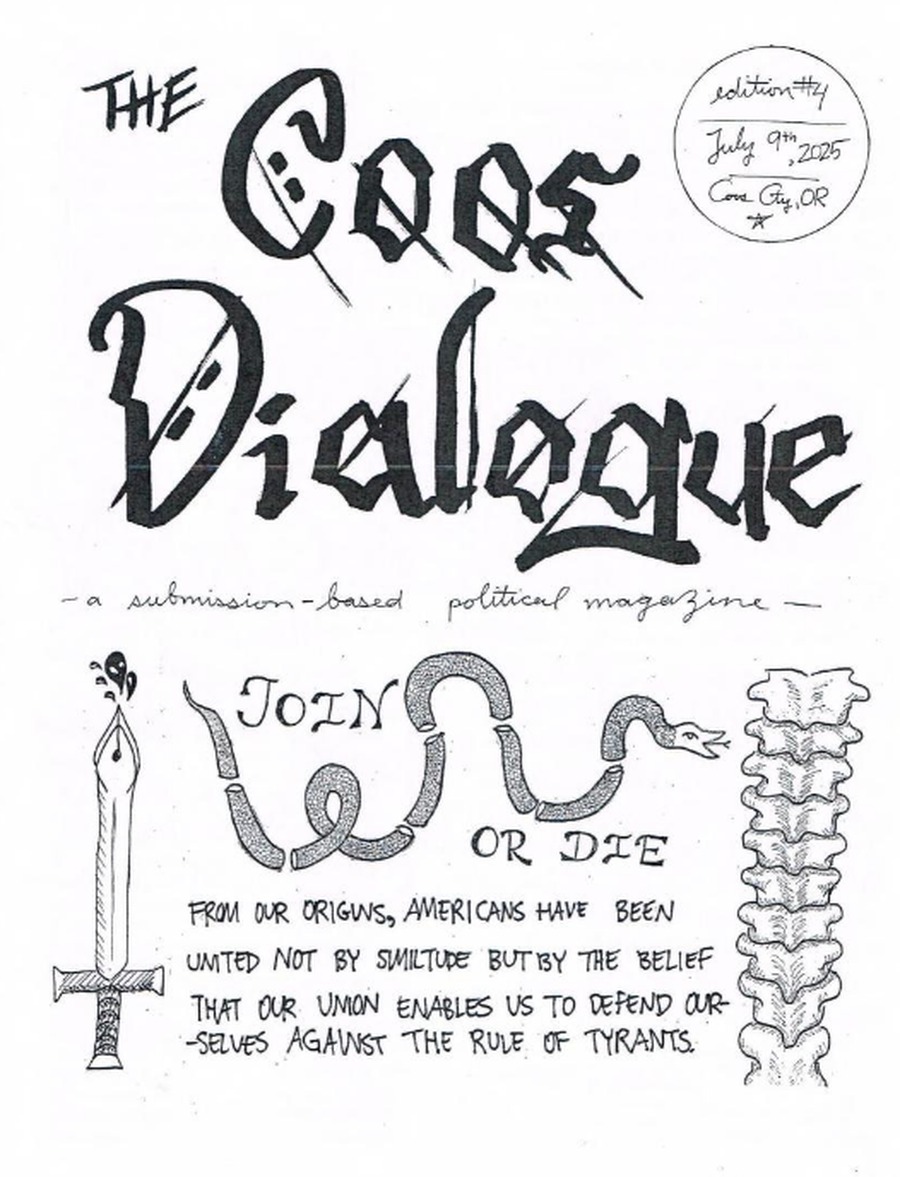 THE
Coos
Dialogue
edition #4
July 9th, 2025
Coos Cty, OR
- a submission-based political magazine -
JOIN
OR DIE
FROM OUR ORIGINS, AMERICANS HAVE BEEN
UNITED NOT BY SIMILTUDE BUT BY THE BELIEF
THAT OUR UNION ENABLES US TO DEFEND OUR-
-SELVES AGAINST THE RULE OF TYRANTS.